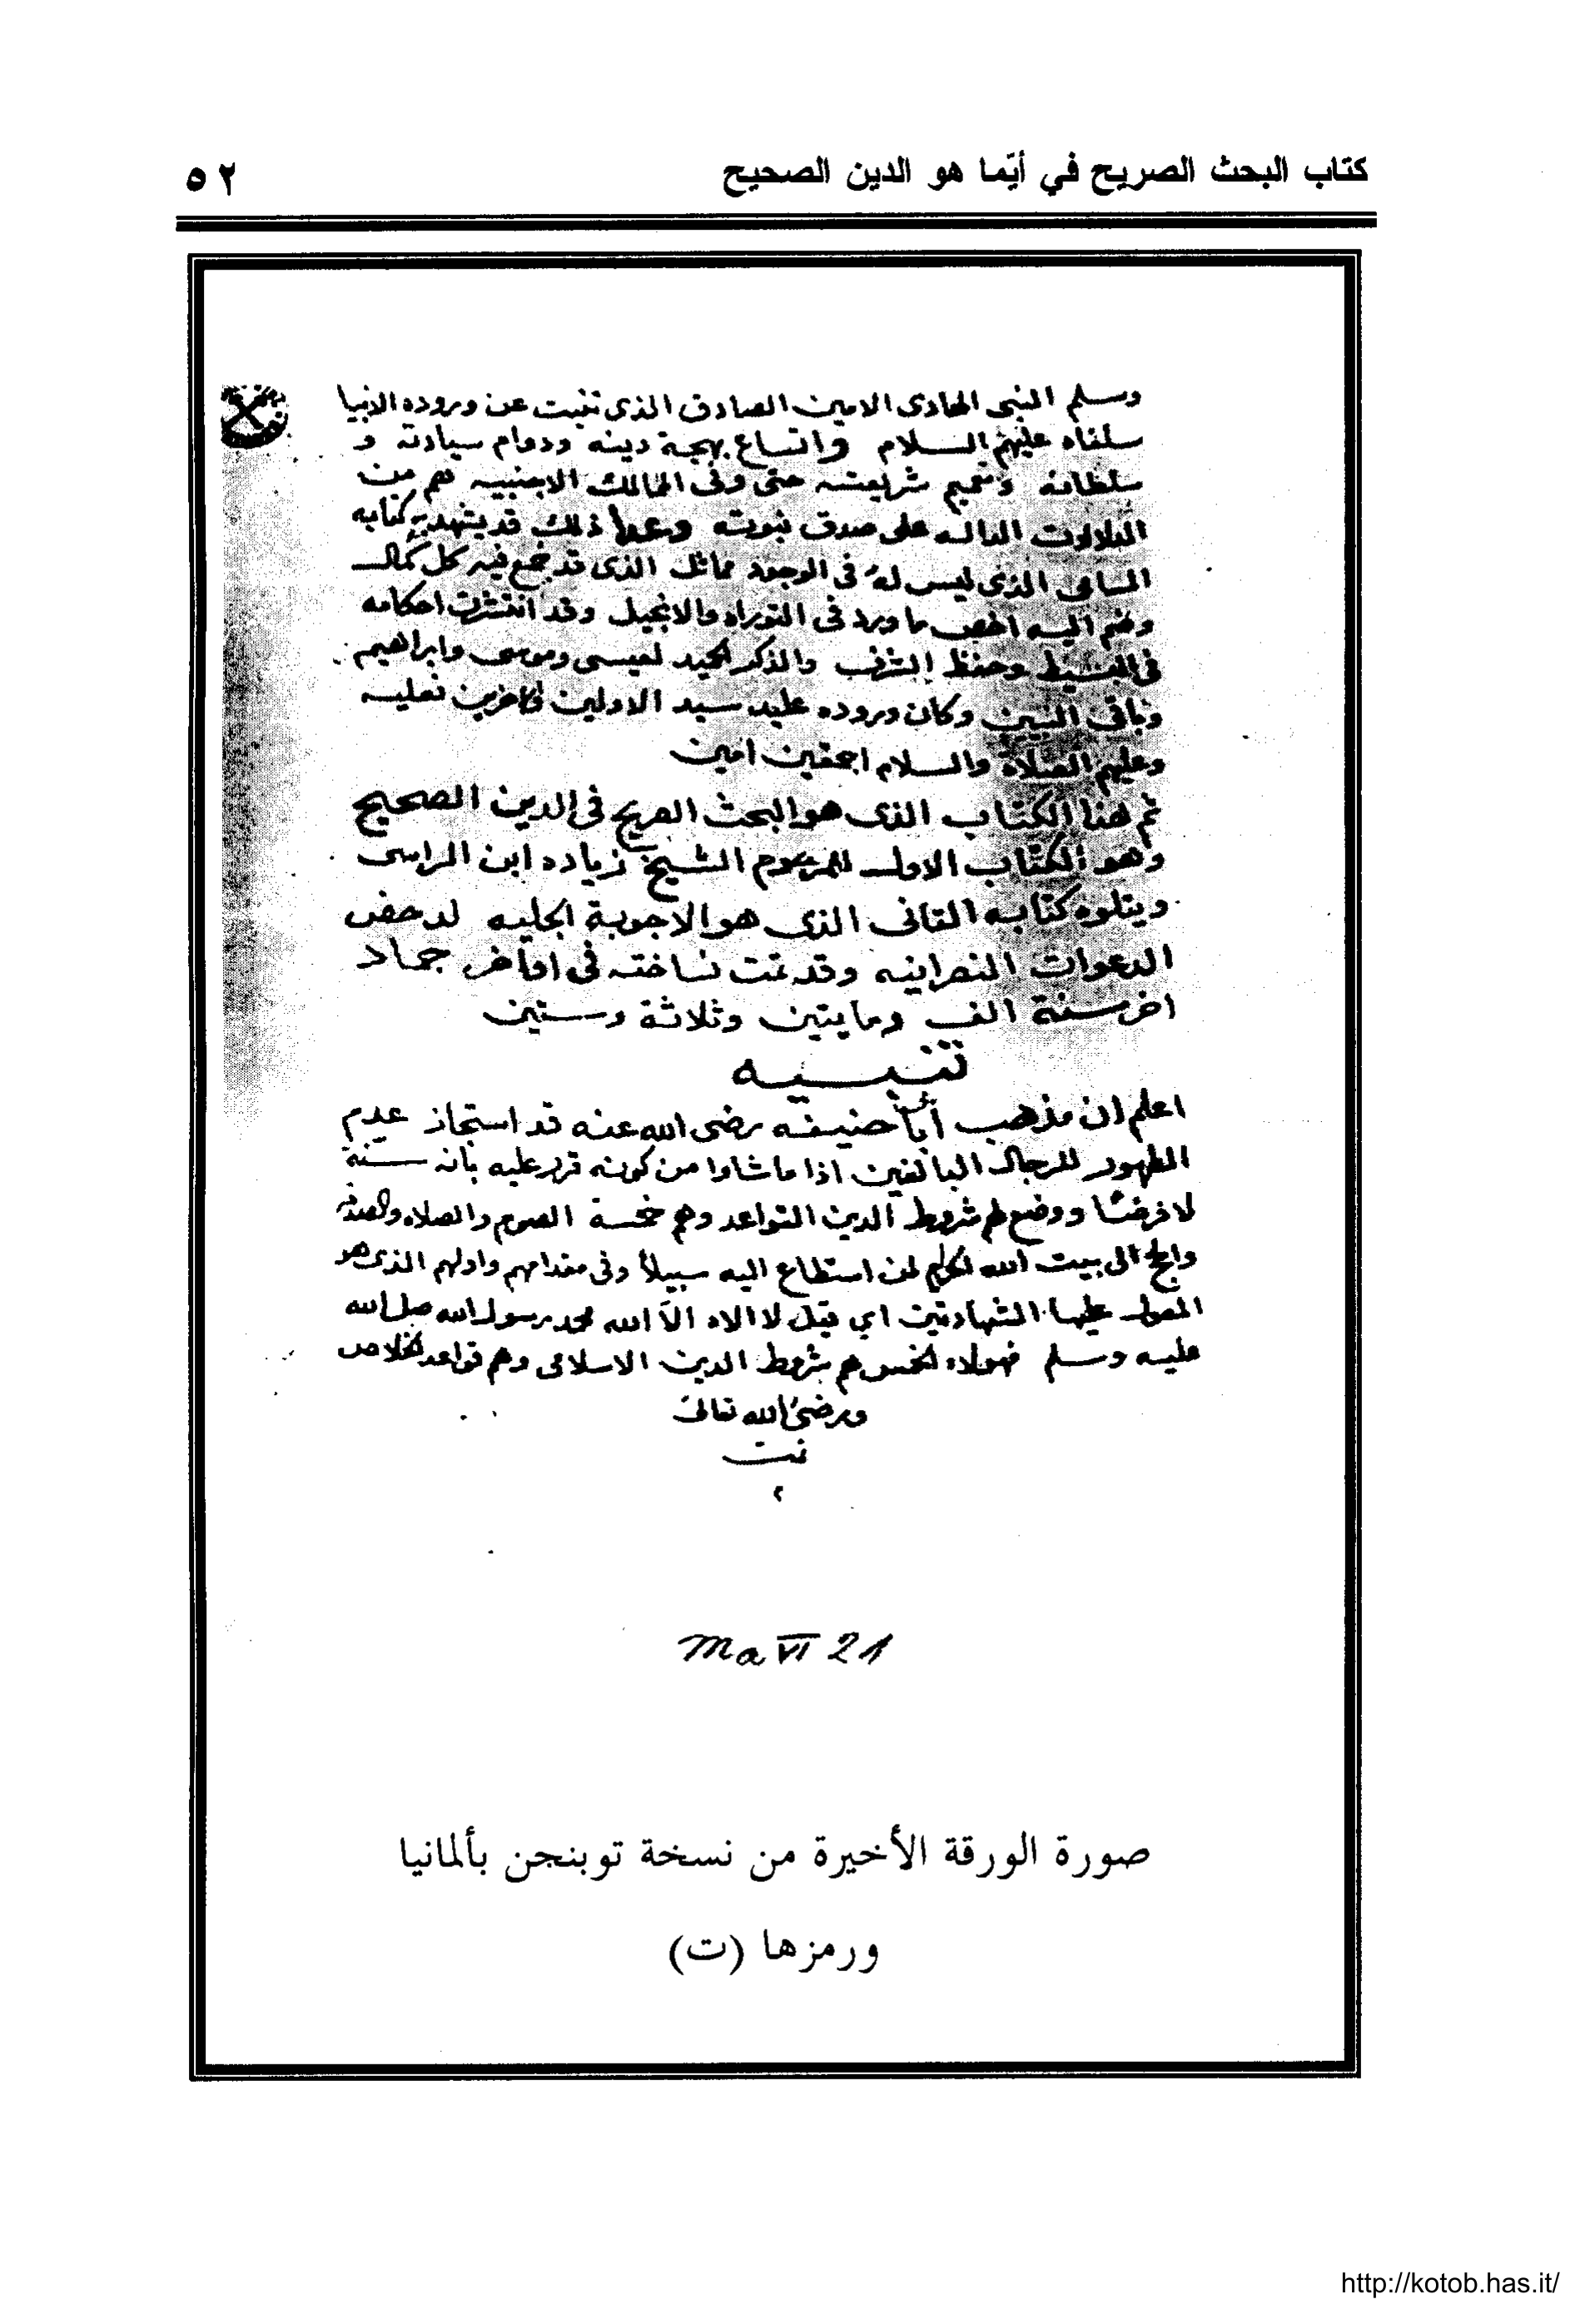 كتاب البحث الصريح في أيّما هو الدين الصحيح
٥٢
وسلم النبى الهادى الامين الصادق الذى تنبت عن وروده الانبيا
سلفاه عليهم السلام واتساع بهجة دينه ودوام سيادته و
سلطانه وتتميم شريعته حتى وفى الممالك الاجنبيه هم من
الدلالوت الداله على صدق نبوته وعدا ذلك قد يشهد به كتابه
السامى الذى ليس له فى الوجود مماثل الذى قد جمع فيه كل كمال
وضم اليه اخص ما ورد فى التوراه والانجيل وقد انتشرت احكامه
فى البسيط وحفظ الشرف والذكر المجيد لعيسى وموسى وابراهيم
وباقى النبيين وكان وروده عليه سيد الاولين والاخرين فعليه
وعليهم الصلاة والسلام اجمعين امين
تم هذا الكتاب الذى هو البحث الصريح فى الدين الصحيح
وهو الكتاب الاول للمرحوم الشيخ زياده ابن الراسى
ويتلوه كتابه التانى الذى هو الاجوبة الجليه لدحض
الدعوات النصرانيه وقد تمت نساخته فى اواخر جماد
اخر سنة الف ومايتين وثلاثة وستين
تنبيه
اعلم ان مذهب أبا حنيفه رضى الله عنه قد استجاز عدم
الطهور للرجال البالغين اذا ما شاوا من كونه قرر عليه بانه سنة
لا فرضًا ووضع لهم شروط الدين القواعد وهم خمسة الصوم والصلاه والصدقه
والحج الى بيت الله الكرام لمن استطاع اليه سبيلاً وفى مقدامهم واولهم الذى هو
المعول عليها الشهادتين اي قبل لا الاه الاّ الله محمد رسول الله صلى الله
عليه وسلم فهولاء الخمس هم شروط الدين الاسلامى وهم قواعد الخلاص
ورضىُ الله تعالىَ
تمت
م
Ma VI 21
صورة الورقة الأخيرة من نسخة توبنجن بألمانيا
ورمزها (ت)
http://kotob.has.it/